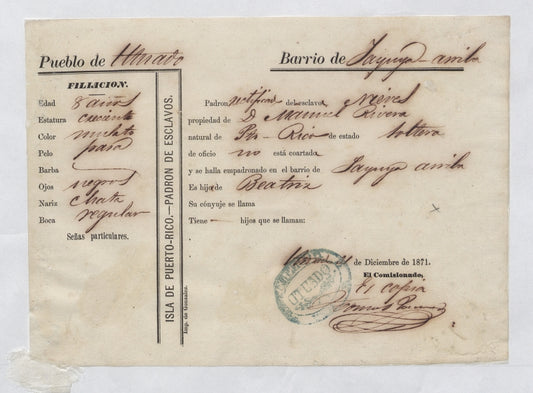 Pueblo de Utuado
Barrio de Jayuya-arriba
FILIACION.
Edad 8 años
Estatura creciente
Color mulato
Pelo pasa
Barba —
Ojos negros
Nariz chata
Boca regular
Señas particulares.
ISLA DE PUERTO-RICO.—PADRON DE ESCLAVOS.
Imp. de Gonzalez.
Padron del esclavo Nieves
propiedad de D. Manuel Rivera
natural de Pto-Rico de estado soltera
de oficio no está coartada
y se halla empadronado en el barrio de Jayuya arriba
Es hija de Beatriz
Su cónyuje se llama
Tiene — hijos que se llaman:
de Diciembre de 1871.
El Comisionado,
Es copia
UTUADO